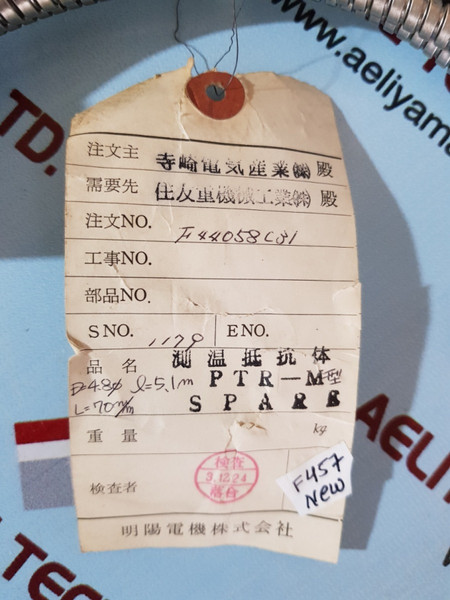 www.aeliyama
TD.
注文主 寺崎電気産業㈱ 殿
需要先 住友重機械工業㈱ 殿
注文NO. F44058C31
工事NO.
部品NO.
S NO. 1179 E NO.
品名 測温抵抗体
D=4.8φ l=5.1m PTR-M型
L=70m/m SPARE
重量 kg
検査者 検査
9.12.24
F457
New
明陽電機株式会社
AELIY
TEC